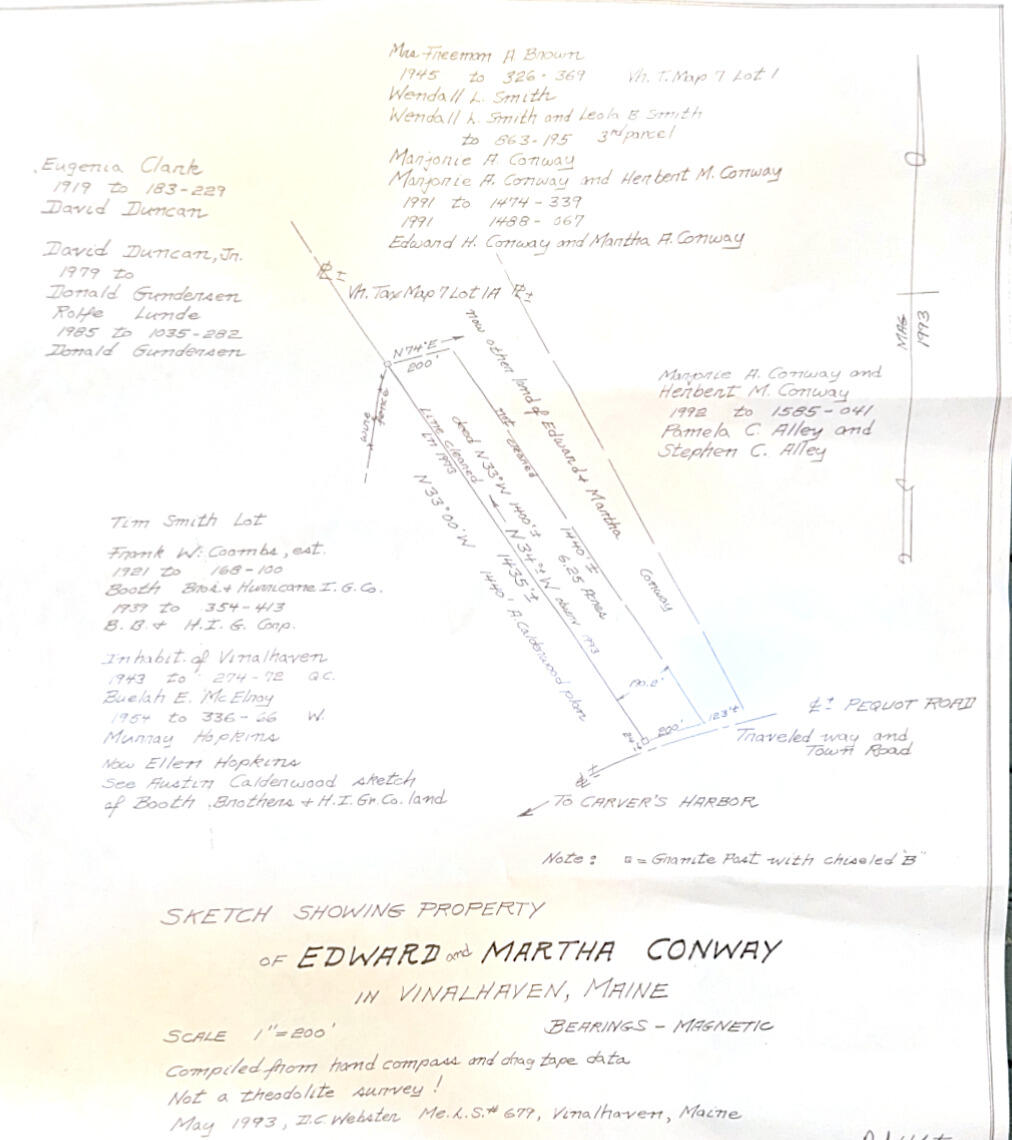 Mrs Freeman A Brown
1945 to 326-369 Vh. T. Map 7 Lot 1
Wendall L. Smith
Wendall L. Smith and Leola B Smith
to 863-195 3rd parcel
Marjorie A. Conway
Marjorie A. Conway and Herbert M. Conway
1991 to 1474-339
1991 1488-067
Edward H. Conway and Martha A. Conway
Eugenia Clark
1919 to 183-229
David Duncan
David Duncan, Jr.
1979 to
Donald Gundersen
Rolfe Lunde
1985 to 1035-282
Donald Gundersen
Vh. Tax Map 7 Lot 1A
MAG 1993
N74°E
200'
wire fence
now other land of Edward + Martha Conway
not cleared
Line cleared in 1993
deed N33°W 1400'±
N33°00'W
N34°±W down 1993
1435'±
1440' A. Calderwood plan
1440'±
6.25 Acres
190.2'
200'
123'±
24'±
Marjorie A. Conway and
Herbert M. Conway
1992 to 1585-041
Pamela C. Alley and
Stephen C. Alley
Tim Smith Lot
Frank W. Coombs, est.
1921 to 168-100
Booth Bros + Hurricane I. G. Co.
1939 to 354-413
B. B. + H. I. G. Corp.
Inhabit. of Vinalhaven
1943 to 274-72 Q.C.
Buelah E. McElroy
1954 to 336-66 W.
Murray Hopkins
Now Ellen Hopkins
See Austin Calderwood sketch
of Booth Brothers + H. I. Gr. Co. land
℄± PEQUOT ROAD
Traveled way and
Town Road
TO CARVER'S HARBOR
Note: □ = Granite Post with chiseled "B"
SKETCH SHOWING PROPERTY
OF EDWARD and MARTHA CONWAY
IN VINALHAVEN, MAINE
SCALE 1"=200' BEARINGS - MAGNETIC
Compiled from hand compass and drag tape data
Not a theodolite survey!
May 1993, D.C. Webster Me. L.S.# 679, Vinalhaven, Maine